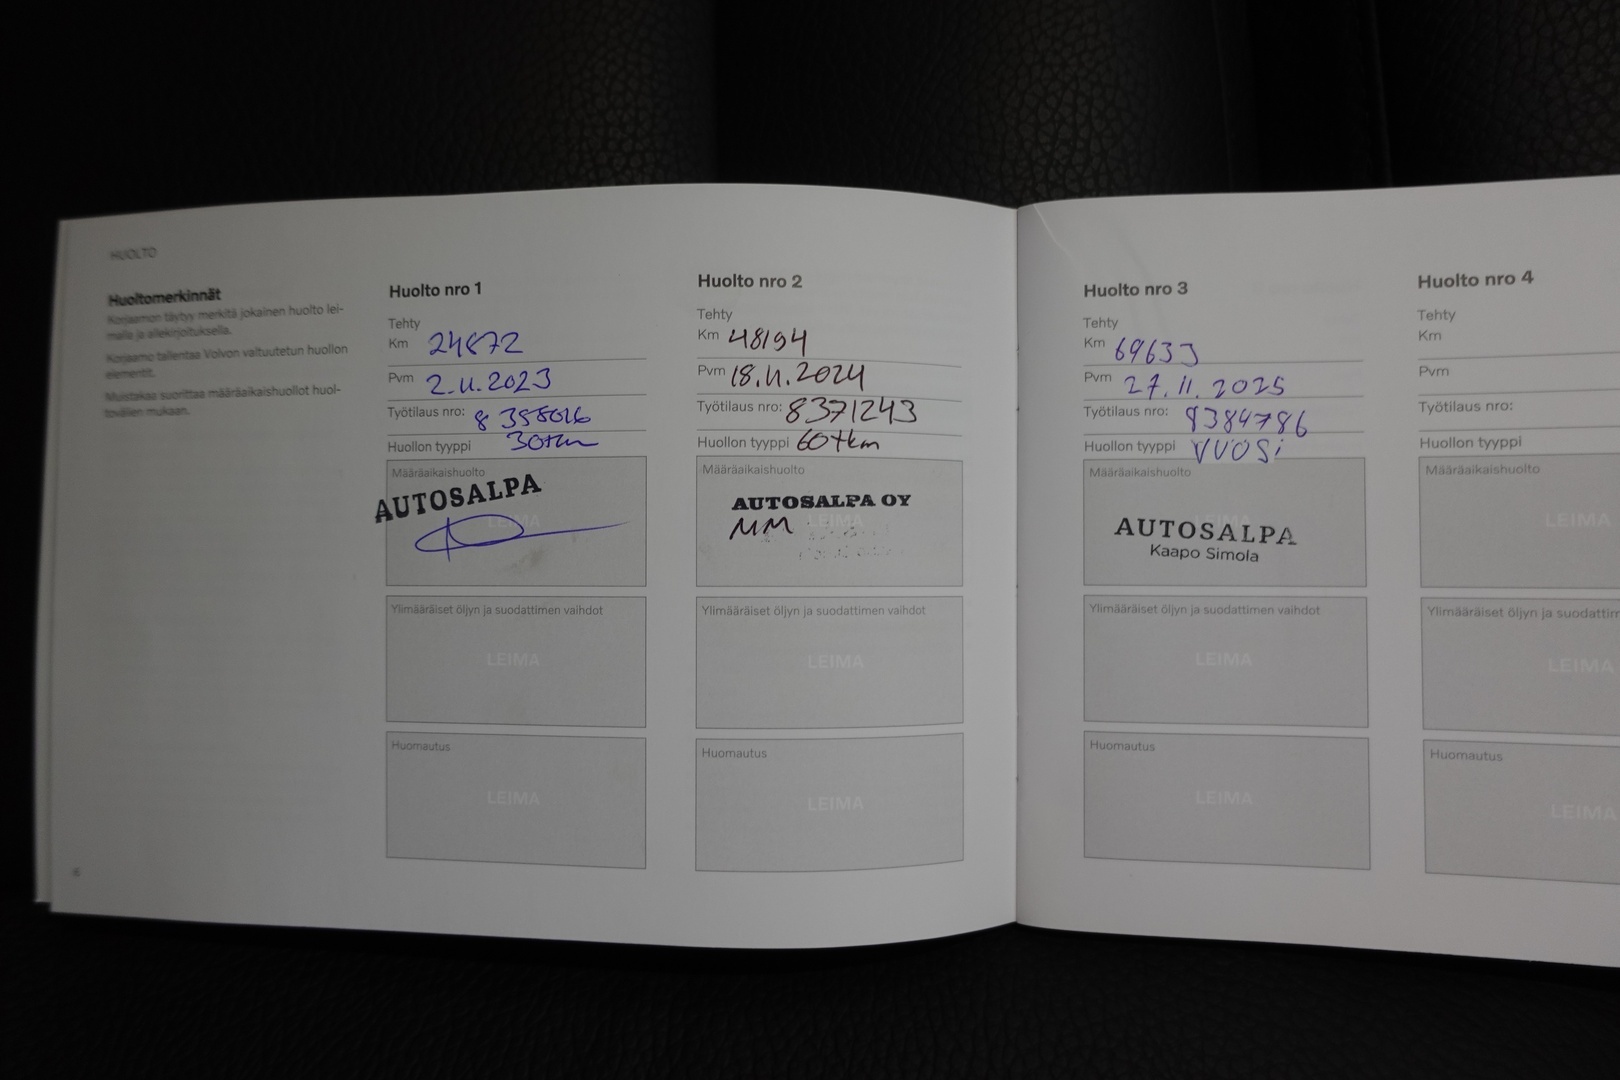 HUOLTO
Huoltomerkinnät
Korjaamon täytyy merkitä jokainen huolto lei-
malla ja allekirjoituksella.
Korjaamo tallentaa Volvon valtuutetun huollon
elementit.
Muistakaa suorittaa määräaikaishuollot huol-
tovälien mukaan.
6
Huolto nro 1
Tehty
Km 24872
Pvm 2.11.2023
Työtilaus nro:
Huollon tyyppi 30tkm
Määräaikaishuolto
AUTOSALPA
LEIMA
Ylimääräiset öljyn ja suodattimen vaihdot
LEIMA
Huomautus
LEIMA
Huolto nro 2
Tehty
Km 48194
Pvm 18.11.2024
Työtilaus nro: 8371243
Huollon tyyppi 60tkm
Määräaikaishuolto
AUTOSALPA OY
MM LEIMA
Ylimääräiset öljyn ja suodattimen vaihdot
LEIMA
Huomautus
LEIMA
Huolto nro 3
Tehty
Km 69633
Pvm 27.11.2025
Työtilaus nro: 8384786
Huollon tyyppi VUOSi
Määräaikaishuolto
AUTOSALPA
Kaapo Simola
Ylimääräiset öljyn ja suodattimen vaihdot
LEIMA
Huomautus
LEIMA
Huolto nro 4
Tehty
Km
Pvm
Työtilaus nro:
Huollon tyyppi
Määräaikaishuolto
LEIMA
Ylimääräiset öljyn ja suodattim
LEIMA
Huomautus
LEIMA